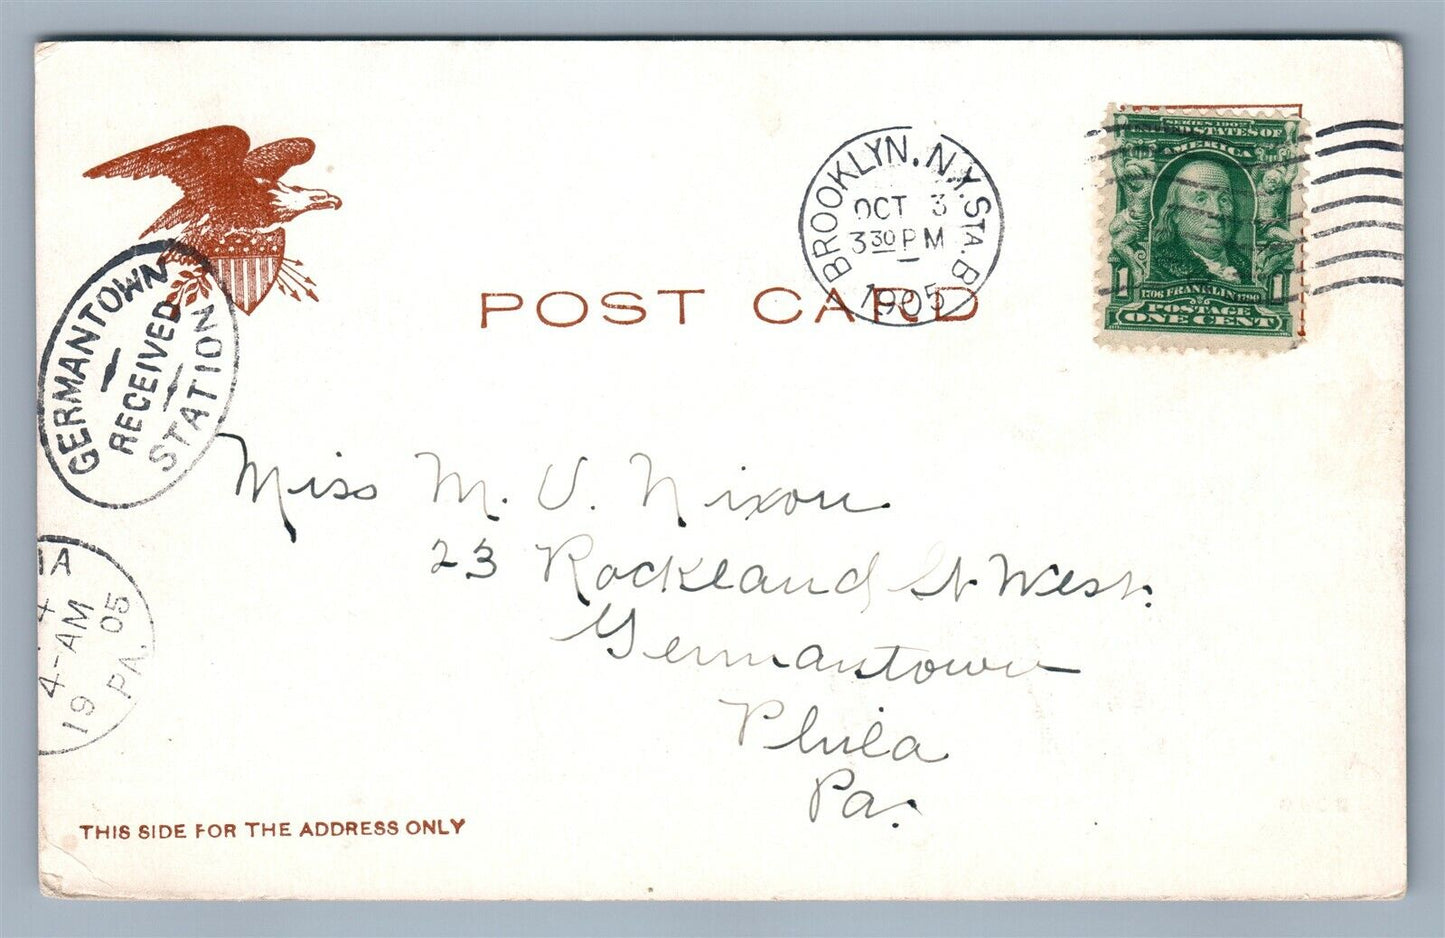 BROOKLYN, N.Y. STA. B.
OCT 3
3 30 PM
1905
SERIES 1902
UNITED STATES OF
AMERICA
1 1706 FRANKLIN 1790 1
POSTAGE
ONE CENT
POST CARD
GERMANTOWN
RECEIVED
STATION
Miss M. V. Nixon
23 Rockland St West.
Germantown
Phila
Pa.
IA
4
4-AM
19 05
PA.
THIS SIDE FOR THE ADDRESS ONLY